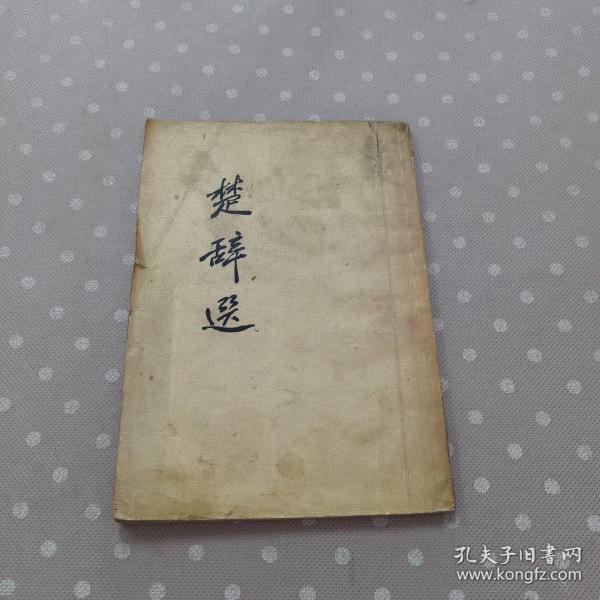 楚辞選
孔夫子旧書网
www.kongfz.com